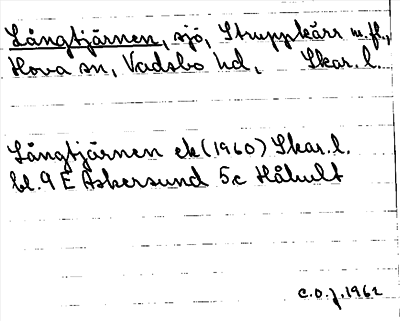 Långtjärnen, sjö, Struppkärr m.fl.,
Hova sn, Vadsbo hd, Skar. l.
Långtjärnen ek (1960) Skar. l.
bl. 9 E Askersund 5c Håhult
C.O.J. 1962